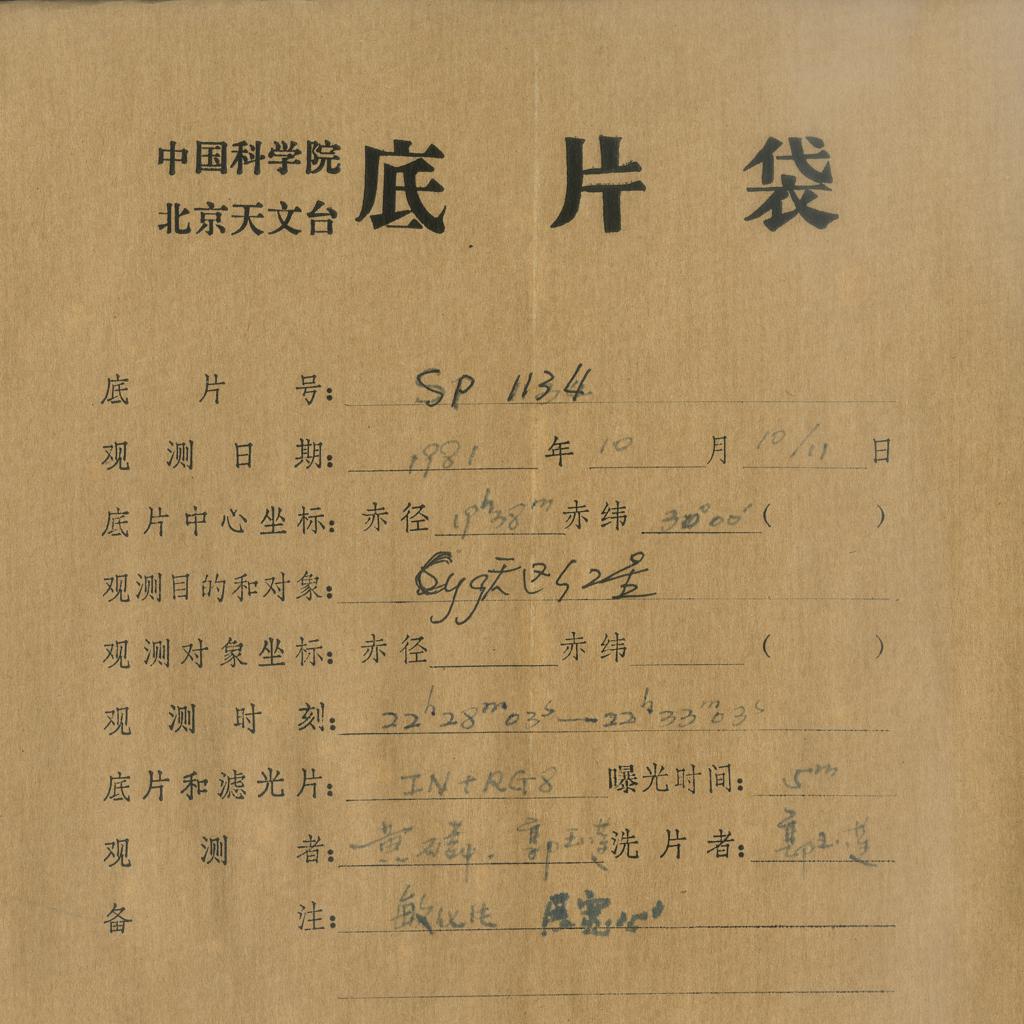 中国科学院
北京天文台
底片袋
底片号: SP 1134
观测日期: 1981 年 10 月 10/11 日
底片中心坐标: 赤径 19h38m 赤纬 30°00′ ( )
观测目的和对象: Cyg天区红星
观测对象坐标: 赤径 赤纬 ( )
观测时刻: 22h28m03s—22h33m03s
底片和滤光片: IN+RG8 曝光时间: 5m
观测者: 黄磷. 郭玉莲 洗片者: 郭玉莲
备注: 敏化 宽